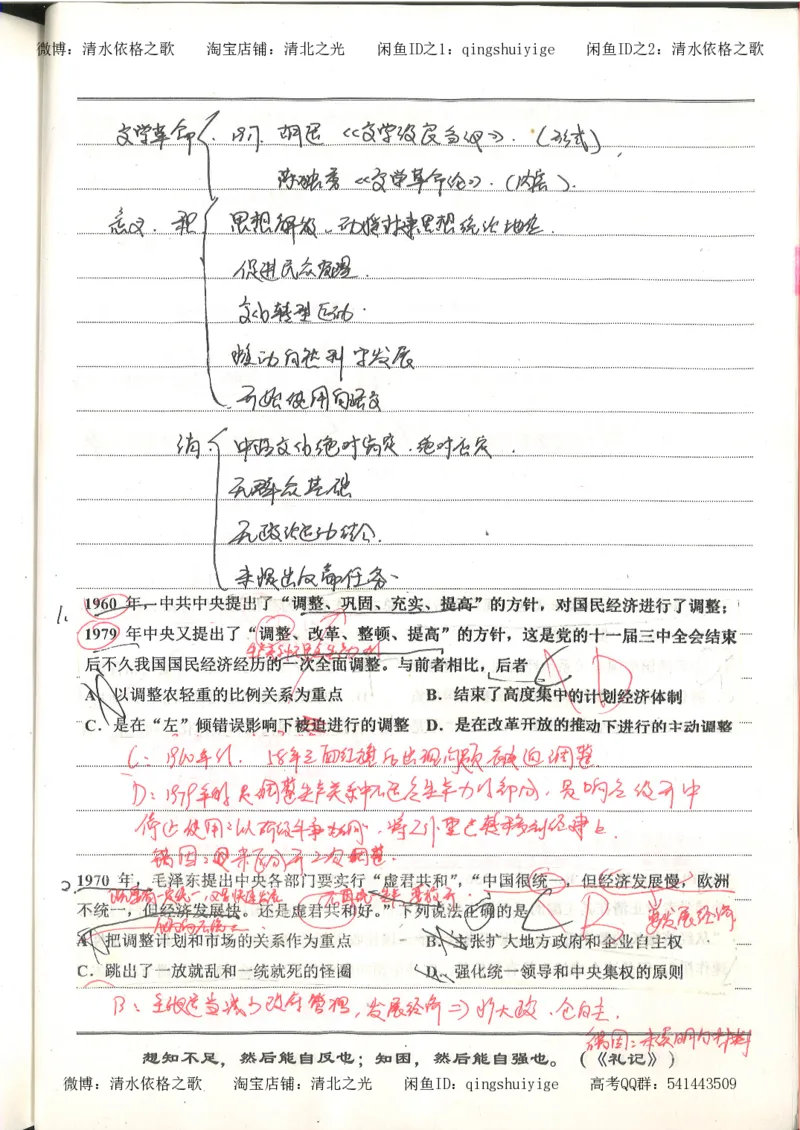 微博：清水依格之歌 淘宝店铺：清北之光 闲鱼ID之1：qingshuiyige 闲鱼ID之2：清水依格之歌
文学革命 1917. 胡适《文学改良刍议》.（形式）
陈独秀《文学革命论》.（内容）.
意义. 积 思想解放. 动摇封建思想统治地位.
促进民众觉醒.
文化转型运动.
推动自然科学发展
开始使用白话文
消. 中西文化绝对肯定.绝对否定.
无群众基础
无政治运动结合.
未提出反帝任务.
1. 1960 年，中共中央提出了“调整、巩固、充实、提高”的方针，对国民经济进行了调整；
1979 年中央又提出了“调整、改革、整顿、提高”的方针，这是党的十一届三中全会结束
后不久我国国民经济经历的一次全面调整。与前者相比，后者 A D
A．以调整农轻重的比例关系为重点 B．结束了高度集中的计划经济体制
C．是在“左”倾错误影响下被迫进行的调整 D．是在改革开放的推动下进行的主动调整
C：1960年代. 58年三面红旗后出现问题 被迫调整
D：1979年时 只调整生产关系中不适合生产力的部分，是响应改开中
停止使用“以阶级斗争为纲”，将工作重心转移到经建上.
错因：没未区分开二次调整.
2. 1970 年，毛泽东提出中央各部门要实行“虚君共和”，“中国很统一，但经济发展慢，欧洲
不统一，但经济发展快。还是虚君共和好。”下列说法正确的是 C B 要发展经济
A．把调整计划和市场的关系作为重点 B．主张扩大地方政府和企业自主权
C．跳出了一放就乱和一统就死的怪圈 D．强化统一领导和中央集权的原则
B：主张适当减少政府管理，发展经济⇒扩大政.企自主.
错因：未读明白材料
想知不足，然后能自反也；知困，然后能自强也。（《礼记》）
微博：清水依格之歌 淘宝店铺：清北之光 闲鱼ID：qingshuiyige 高考QQ群：541443509